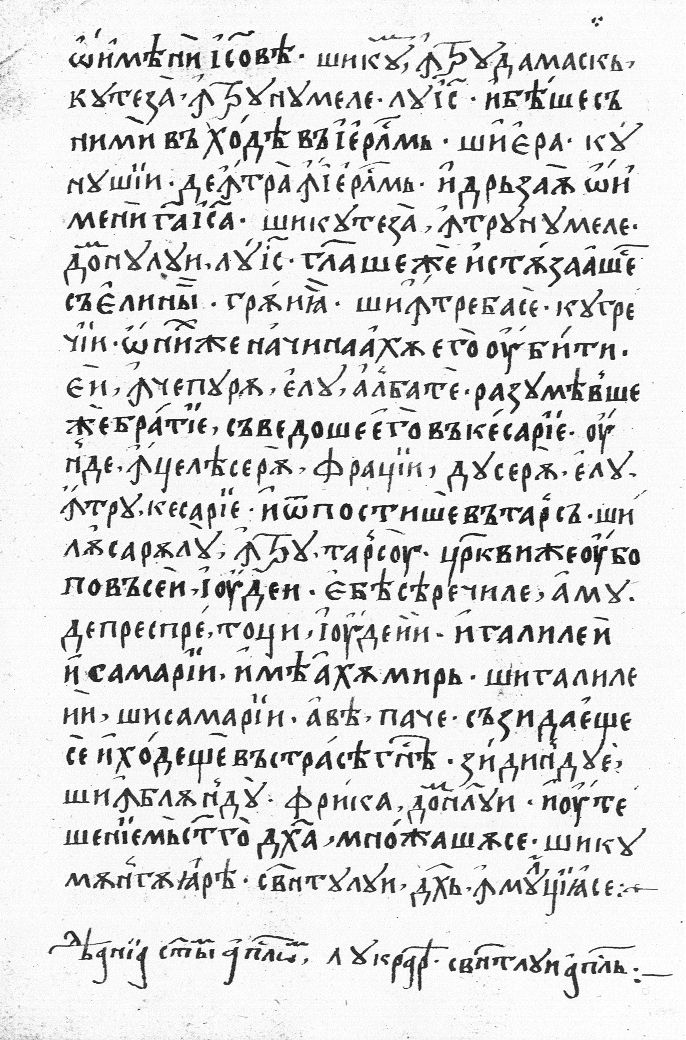 ѡ҆и҆мѣни і҆со́вѣ · шику , ꙟтрꙋ дамаскь ,
кꙋтеза̀ · ꙟтрꙋ нꙋмеле · лꙋи і҆с҃ · и҆бѣ́ше съ
ни́ми въхо́дѣ въі҆ерл҃мь · ши е҆ра · кꙋ́
нꙋшїи · де ꙟтра̀ ꙟ і҆ерл҃мь · и҆дръзаѧ ѡ҆и
мени г҃а і҆с҃а · шикꙋтеза̀ , ꙟтрꙋ нꙋмеле ·
до́мнꙋлꙋи , лꙋ́и і҆с҃ · гл҃аше же и҆стѧза́аше
съ е҆лины · грѫ́иꙗ · ши ꙟтребасе · кꙋгре
чїи · ѡ҆ни́же начинаахѫ е҆го̀ оу҆би́ти ·
е҆и , ꙟчепꙋрѫ , е҆лꙋ , а҆лбате · разꙋмѣ́вше
же бра́тїе , съведоше е҆го̀ въке́сарїе · оу҆
нде , ꙟцелѣсерѫ , фрацїи , дꙋсерѫ , е҆лꙋ ·
ꙟтрꙋ , кесарїе · и҆ѿпостише въта́рсъ · ши
лѫсарѫлꙋ̀ , ꙟтрꙋ , та́рсоу · цр҃кви же оу҆бо
по въсеи , і҆оу҆деи · е҆бѣсѣречиле , а҆мꙋ ·
де преспре́ , тоци , і҆оу҆деии · и҆галилеи
и҆ самарїи , и҆мѣ́ахѫ мирь · шигалиле
ии , шисамарїи · а҆вѣ , паче · съзида́еще
се и҆ хо́деще въстра́сѣ гн҃ѣ · зи́диндꙋѐ ,
ши ꙟблѫндꙋ̀ · фри́ка , до́мнлꙋи · и҆оу҆те
шенїемь ст҃го дх҃а , мно́жашѫсе · шикꙋ
мѫнгѫꙗ́рѣ · свн҃тꙋлꙋи , дх҃ь , ꙟмꙋлцїꙗсе :
дѣанїа ст҃ы а҆пл҃ѡ , лꙋкрар · свн҃тлꙋи а҆пл҃ь :